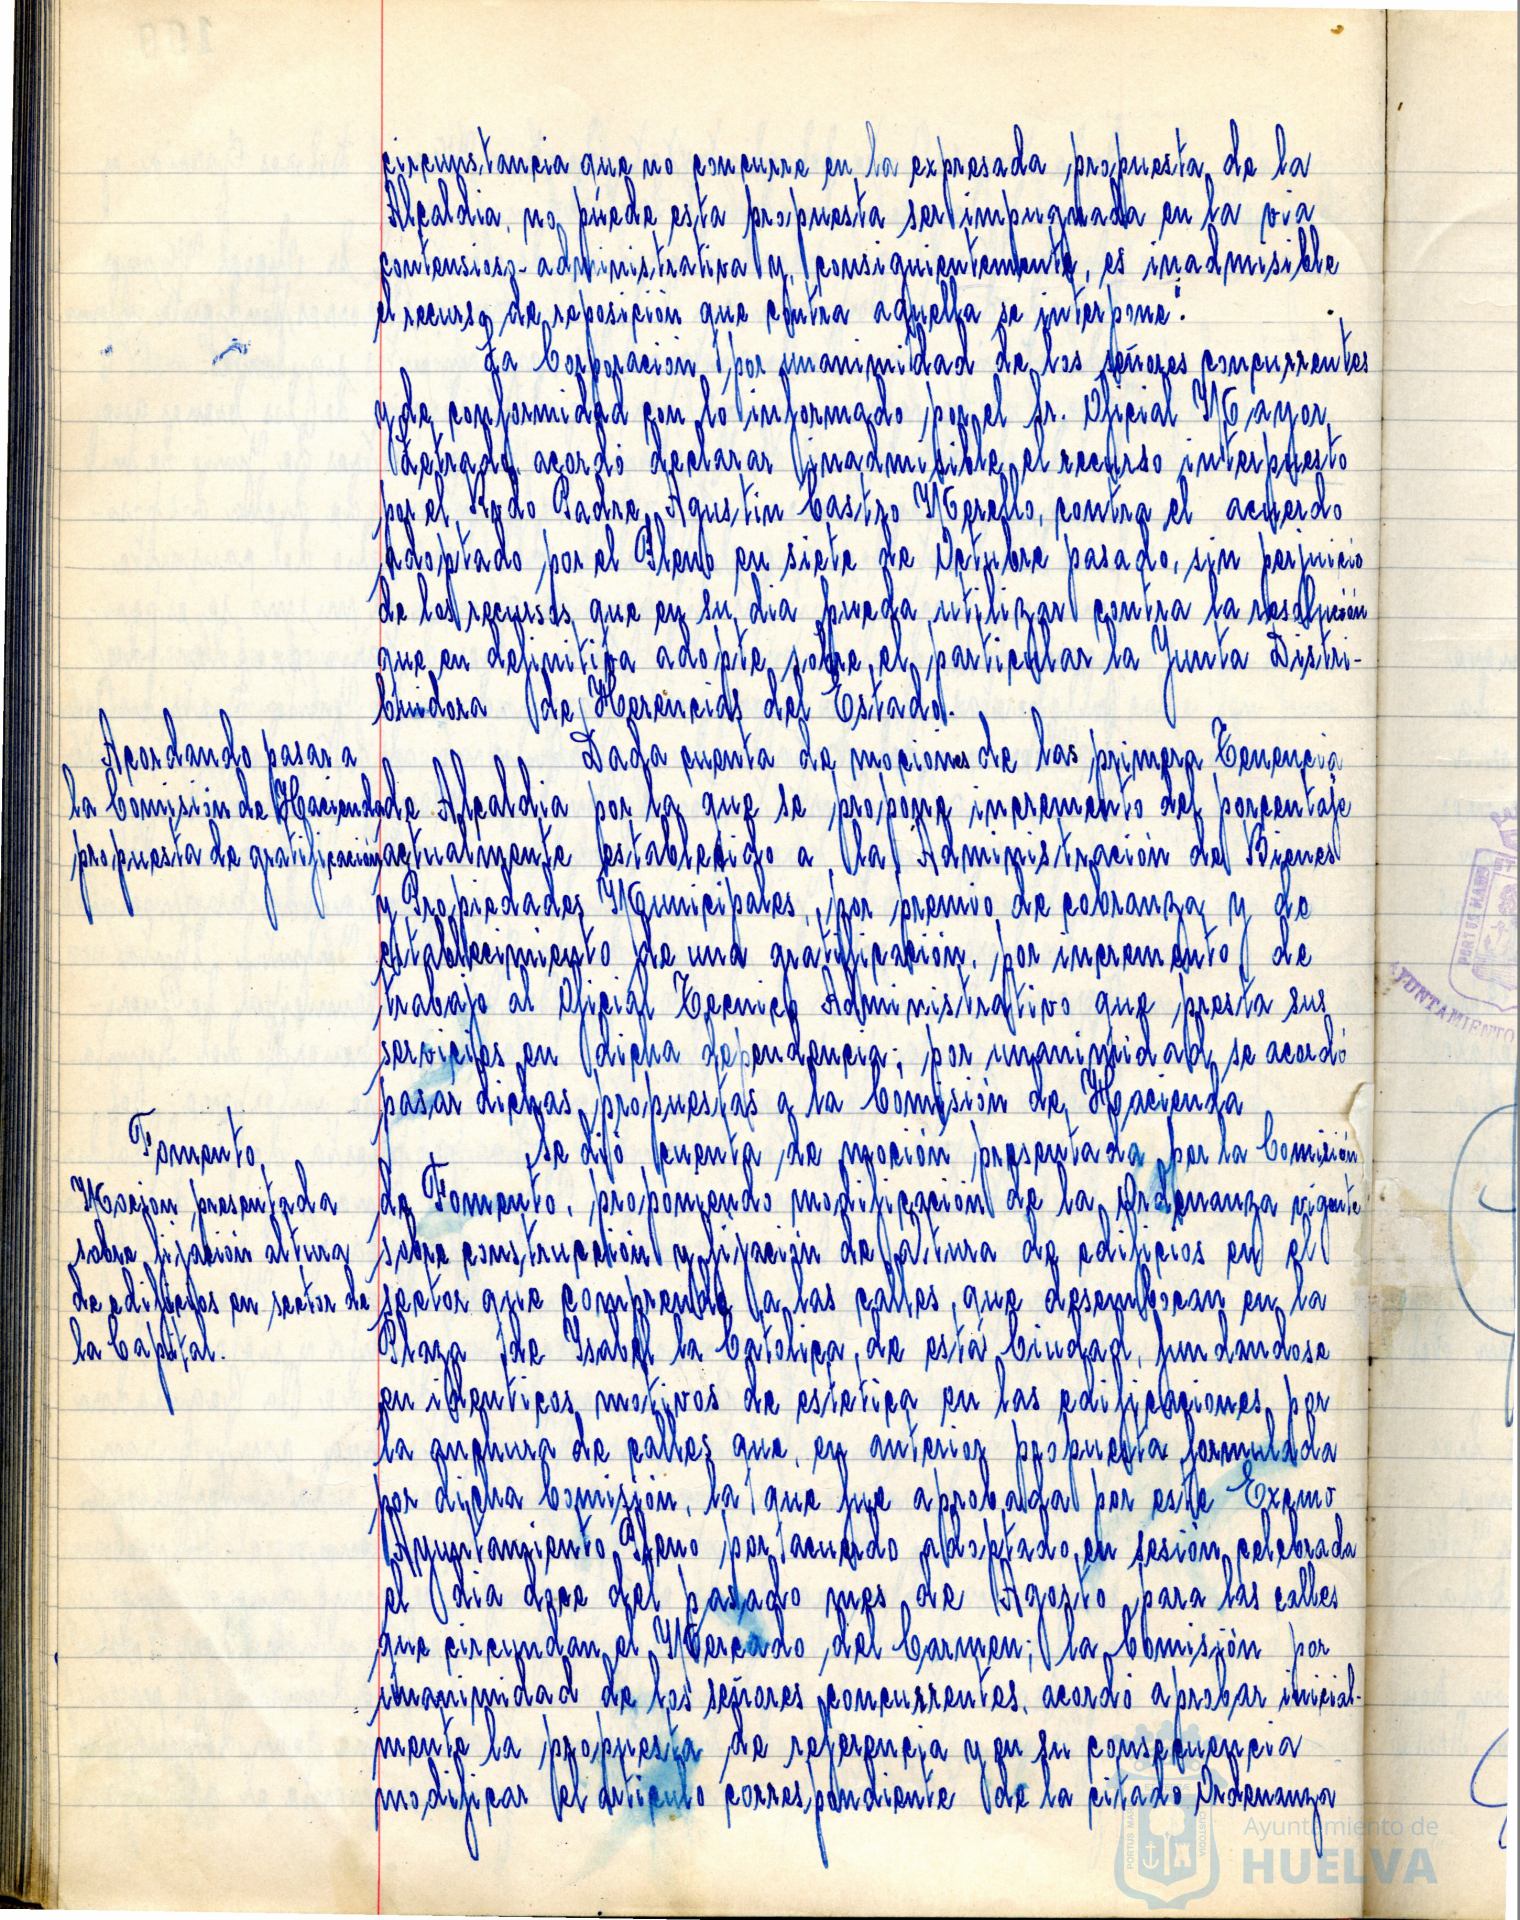 circunstancia que no concurre en la expresada propuesta de la
Alcaldia, no puede esta propuesta ser impugnada en la via
contensioso-administrativa y, consiguientemente, es inadmisible
el recurso de reposición que contra aquella se interpone".
La Corporación, por unanimidad de los señores concurrentes
y de conformidad con lo informado por el Sr. Oficial Mayor
Letrado, acordó declarar inadmisible el recurso interpuesto
por el Rvdo Padre Agustin Castro Merello, contra el acuerdo
adoptado por el Pleno en siete de Octubre pasado, sin perjuicio
de los recursos que en su dia pueda utilizar contra la resolución
que en definitiva adopte sobre el particular la Junta Distri-
buidora de Herencias del Estado.
Acordando pasar a
la Comisión de Hacienda
propuesta de gratificación
Dada cuenta de mociones de las primera Tenencia
de Alcaldia por la que se propone incremento del porcentaje
actualmente establecido a la Administración de Bienes
y Propiedades Municipales, por premio de cobranza y de
establecimiento de una gratificación, por incremento de
trabajo al Oficial Tecnico Administrativo que presta sus
servicios en dicha dependencia; por unanimidad se acordó
pasar dichas propuestas a la Comisión de Hacienda
Fomento,
Moción presentada
sobre fijación altura
de edificios en sector de
la Capital.
Se dió cuenta de moción presentada por la Comisión
de Fomento, proponiendo modificación de la Ordenanza vigente
sobre construcción y fijación de altura de edificios en el
sector que comprende a las calles, que desembocan en la
Plaza de Isabel la Catolica, de esta Ciudad, fundandose
en identicos motivos de estetica en las edificaciones por
la anchura de calles que, en anterior propuesta formulada
por dicha Comisión, la que fue aprobada por este Excmo
Ayuntamiento Pleno por acuerdo adoptado en sesión celebrada
el dia doce del pasado mes de Agosto para las calles
que circundan el Mercado del Carmen; la Comisión por
unanimidad de los señores concurrentes, acordó aprobar inicial-
mente la propuesta de referencia y en su consecuencia
modificar el articulo correspondiente de la citado Ordenanza
PORTUS MARIS
AYUNTAMIENTO
Ayuntamiento de
HUELVA